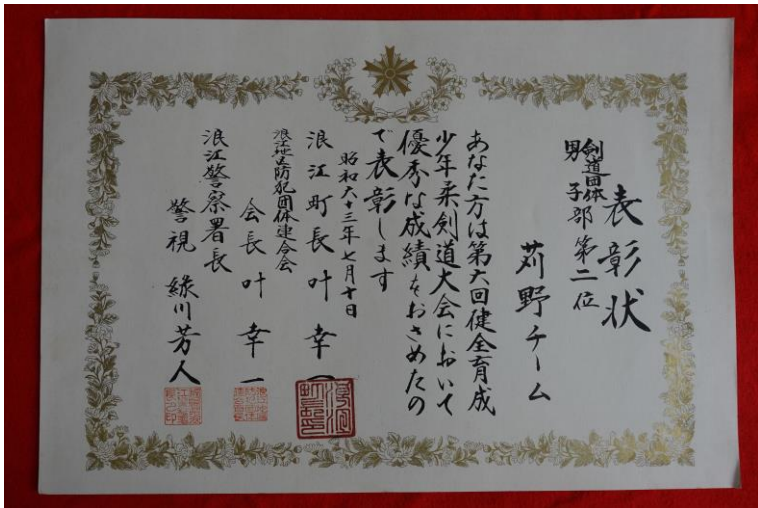 表彰状
剣道団体
男子部第二位
苅野チーム
あなた方は第六回健全育成
少年柔剣道大会において
優秀な成績をおさめたの
で表彰します
昭和六十三年七月十日
浪江町長叶幸一
浪江地区防犯団体連合会
会長叶幸一
浪江警察署長
警視緑川芳人